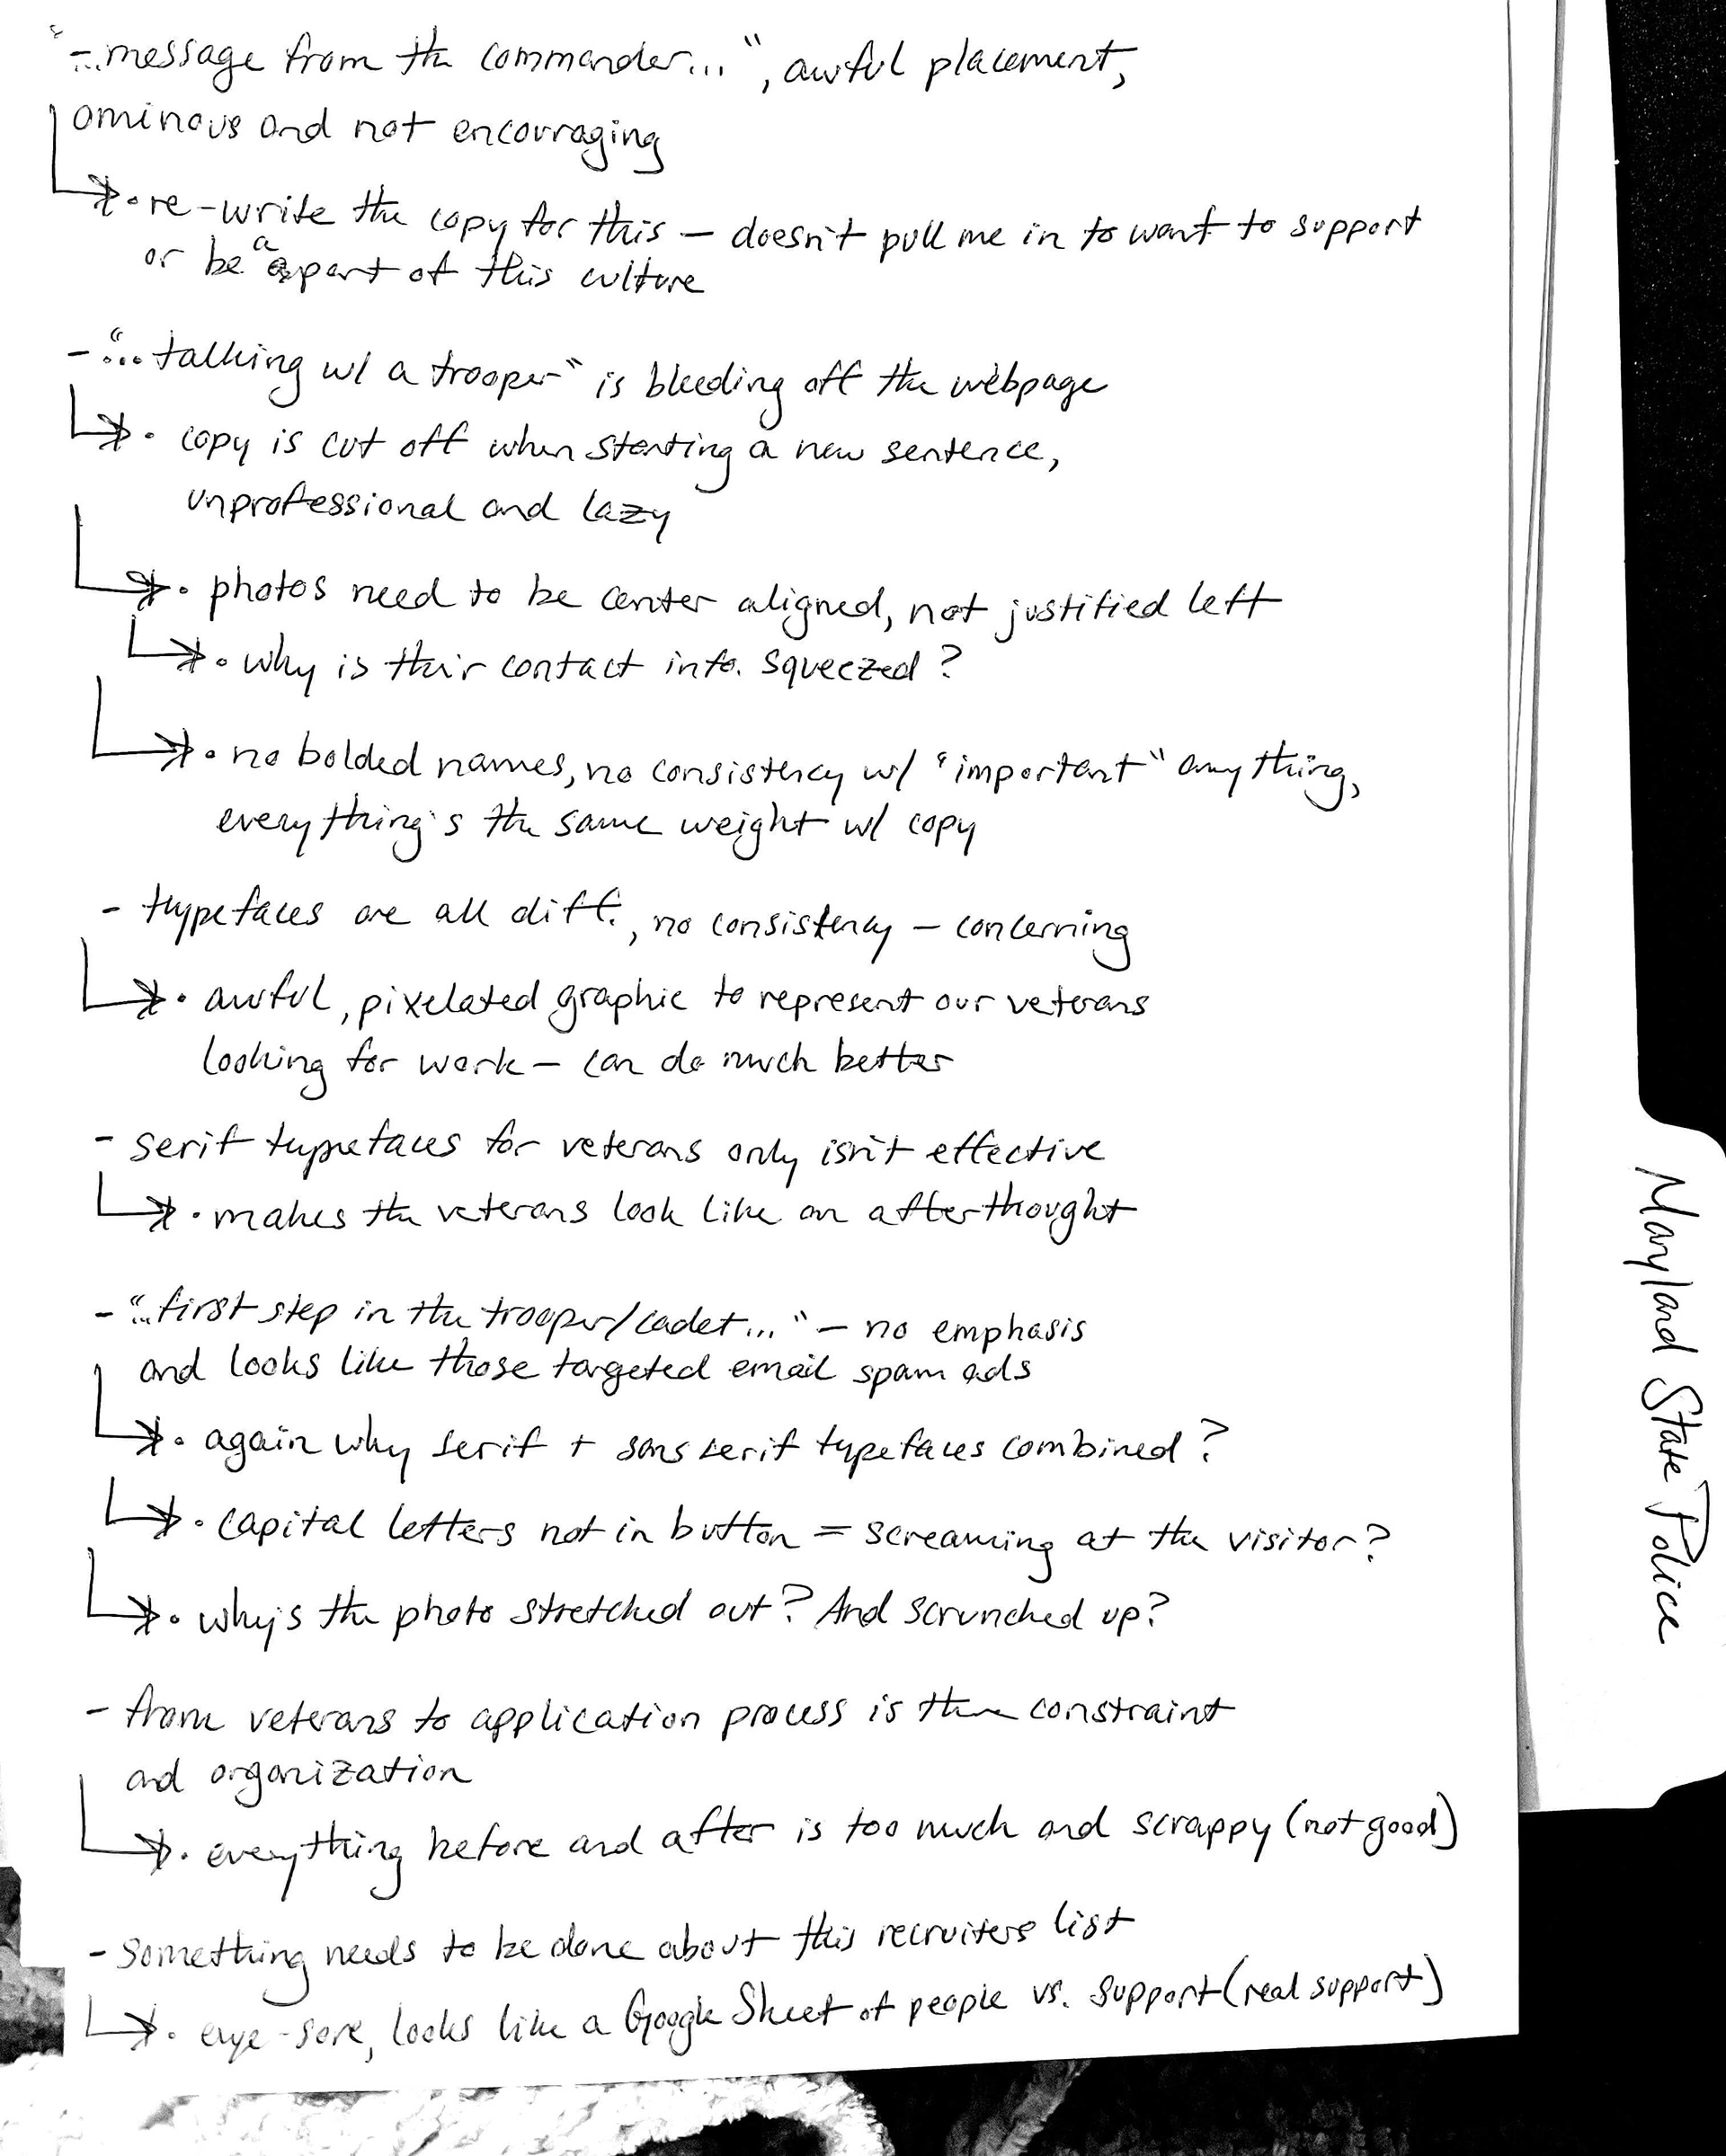 - "...message from the commander...", awful placement,
ominous and not encouraging
• re-write the copy for this — doesn't pull me in to want to support
or be "a part of this culture
- "... talking w/ a trooper" is bleeding off the webpage
• copy is cut off when starting a new sentence,
unprofessional and lazy
• photos need to be center aligned, not justified left
• why is their contact info. squeezed?
• no bolded names, no consistency w/ "important" anything,
everything's the same weight w/ copy
- typefaces are all diff., no consistency — concerning
• awful, pixelated graphic to represent our veterans
looking for work — can do much better
- serif typefaces for veterans only isn't effective
• makes the veterans look like an afterthought
- "...first step in the trooper/cadet..." — no emphasis
and looks like those targeted email spam ads
• again why serif + sans serif typefaces combined?
• capital letters not in button = screaming at the visitor?
• why's the photo stretched out? And scrunched up?
- from veterans to application process is the constraint
and organization
• everything before and after is too much and scrappy (not good)
- something needs to be done about this recruiters list
• eye-sore, looks like a Google Sheet of people vs. support (real support)
Maryland State Police